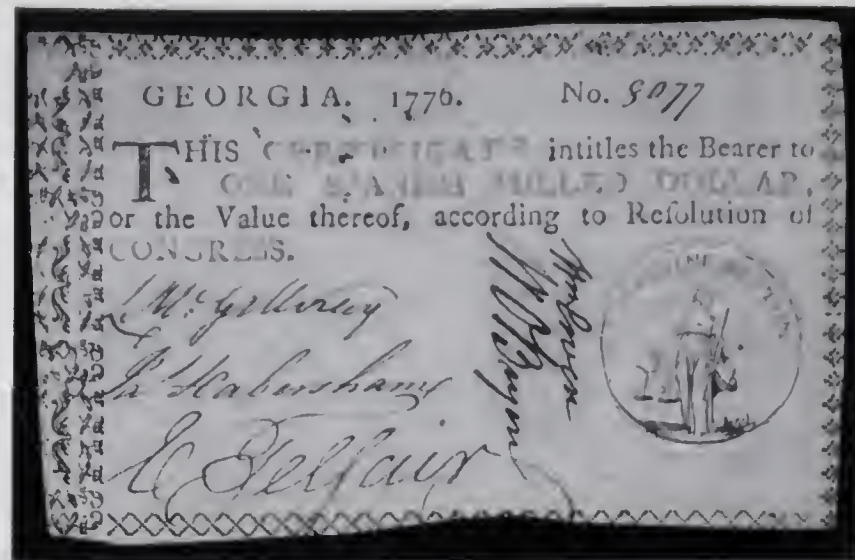 GEORGIA. 1776. No. 9077
THIS CERTIFICATE intitles the Bearer to
ONE SPANISH MILLED DOLLAR,
or the Value thereof, according to Reſolution of
CONGRESS.
Jas Habersham
E Telfair